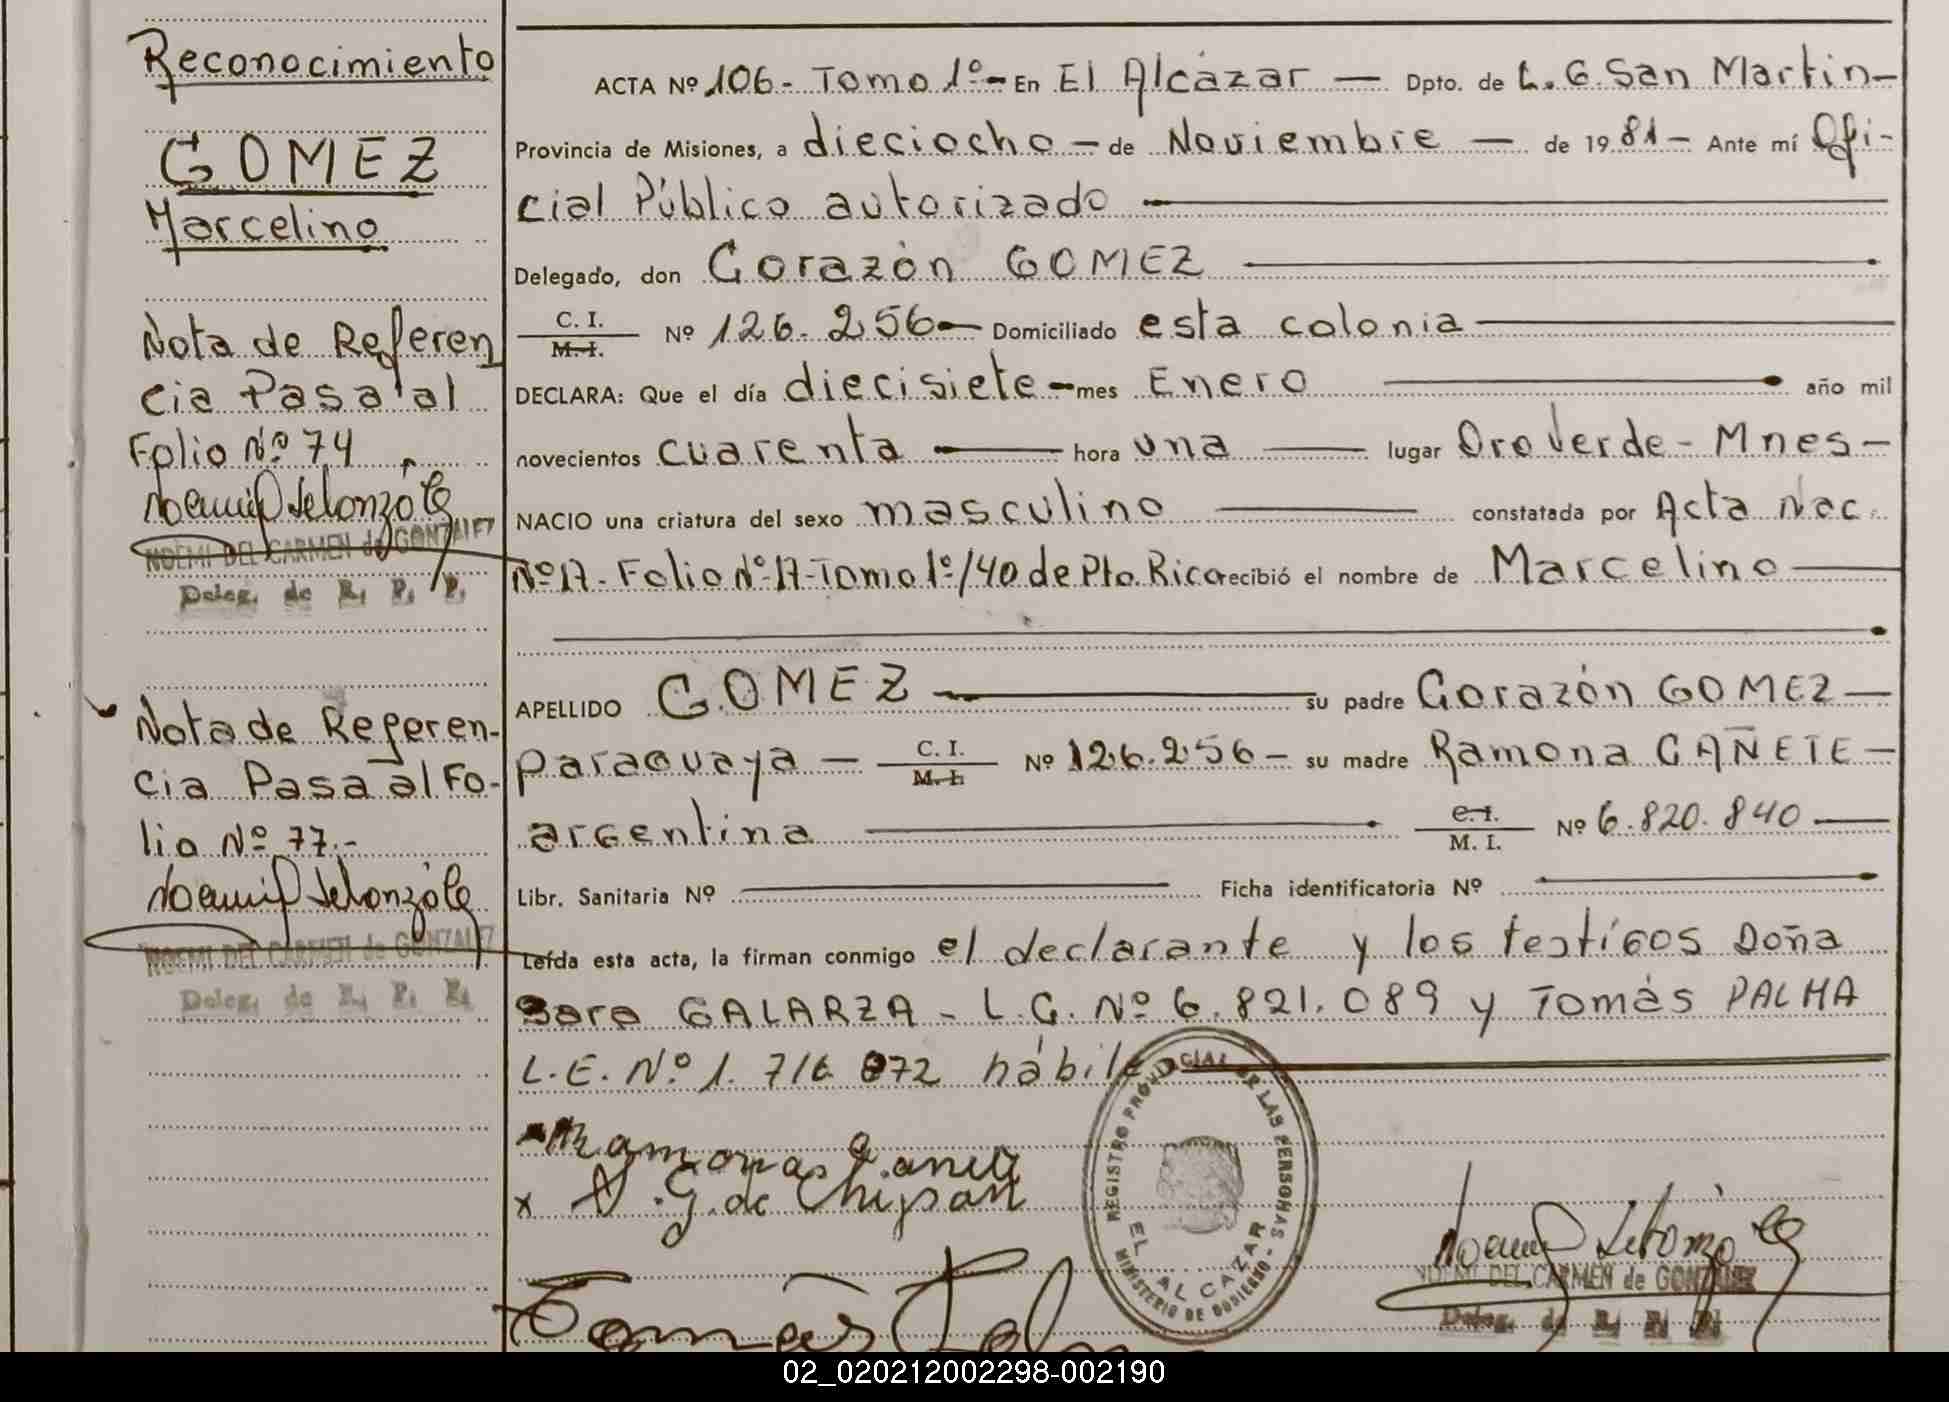 Reconocimiento
GOMEZ
Marcelino
Nota de Referen
cia Pasa al
Folio Nº 74
NOEMI DEL CARMEN de GONZALEZ
Deleg. de R. P. P.
Nota de Referen-
cia Pasa al Fo-
lio Nº 77.-
NOEMI DEL CARMEN de GONZALEZ
Deleg. de R. P. P.
ACTA Nº 106.- Tomo 1º- En El Alcázar — Dpto. de L. G. San Martin-
Provincia de Misiones, a dieciocho - de Noviembre — de 1981- Ante mí Ofi-
cial Público autorizado
Delegado, don Corazón GOMEZ
C. I.
M. I. Nº 126.256- Domiciliado esta colonia
DECLARA: Que el día diecisiete - mes Enero año mil
novecientos cuarenta — hora una — lugar Oro Verde - Mnes-
NACIO una criatura del sexo masculino constatada por Acta Nac.
Nº 17- Folio Nº 17-Tomo 1º/40 de Pto. Rico recibió el nombre de Marcelino
APELLIDO GOMEZ su padre Corazón GOMEZ
paraguaya — C. I.
M. I. Nº 126.256- su madre Ramona CAÑETE-
argentina C. I.
M. I. Nº 6.820.840
Libr. Sanitaria Nº Ficha identificatoria Nº
Leída esta acta, la firman conmigo el declarante y los testigos Doña
Sara GALARZA - L.C. Nº 6.821.089 y Tomás PALMA
L.E. Nº 1.716.072 hábiles
Ramona Cañete
x S. G. de
Tomás Palma
REGISTRO PROVINCIAL DE LAS PERSONAS
EL ALCAZAR
MINISTERIO DE GOBIERNO
NOEMI DEL CARMEN de GONZALEZ
Deleg. de R. P. P.
02_020212002298-002190